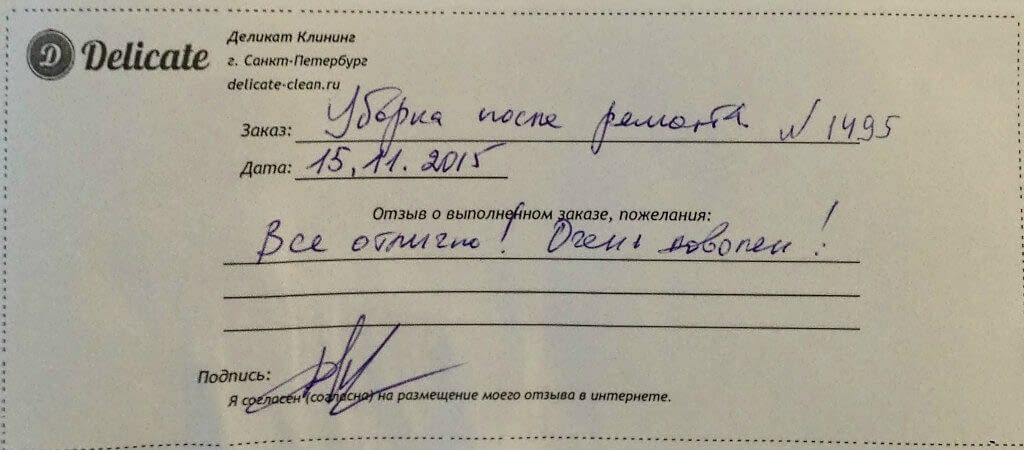 Delicate
Деликат Клининг
г. Санкт-Петербург
delicate-clean.ru
Заказ: Уборка после ремонта № 1495
Дата: 15.11.2015
Отзыв о выполненном заказе, пожелания:
Все отлично! Очень доволен!
Подпись:
Я согласен (согласна) на размещение моего отзыва в интернете.